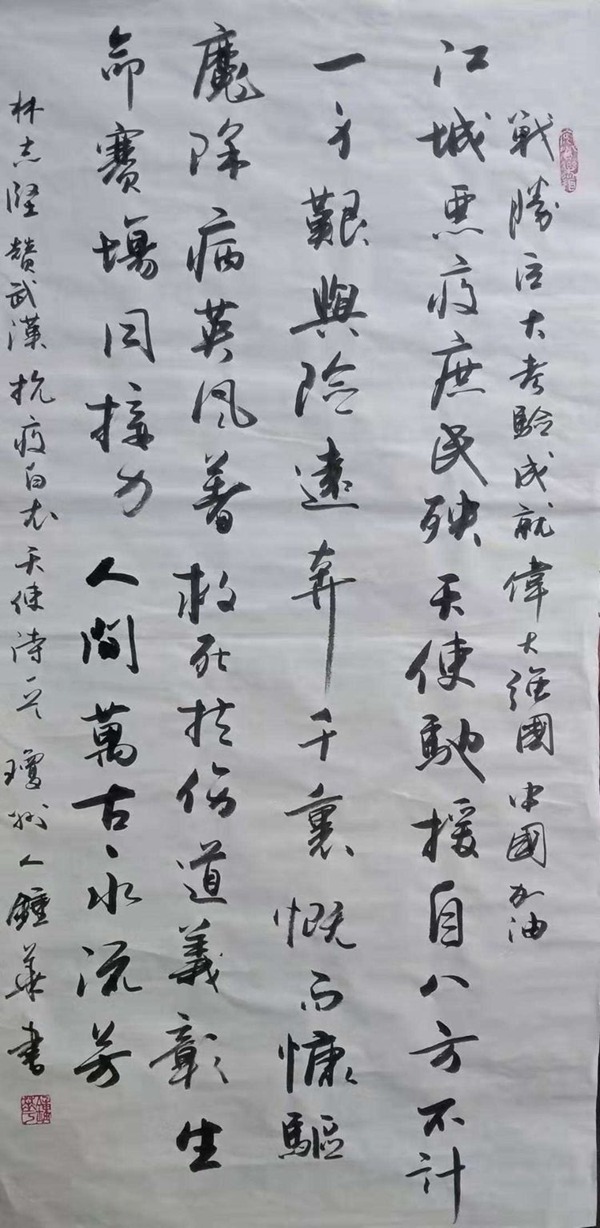 戰勝巨大考驗成就偉大強國中國加油
江城惡疫庶民殃天使馳援自八方不計
一身艱與險遠奔千裏慨而慷驅
魔除病英風著救死扶傷道義彰生
命賽場同接力人間萬古永流芳
林志堅贊武漢抗疫白衣天使詩一首 瓊州人鍾華書